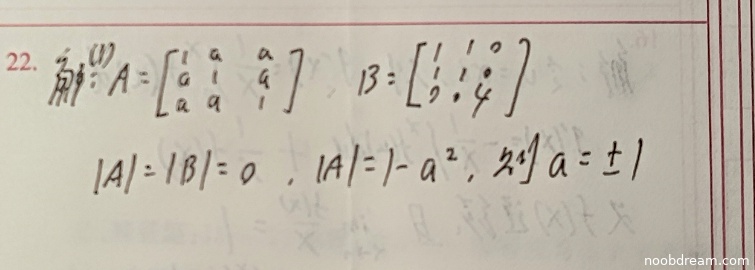 22. 解:(1) A = [1 a a; a 1 a; a a 1] B = [1 1 0; 1 1 0; 0 0 4]
|A| = |B| = 0 , |A| = 1 - a², 则 a = ±1
noobdream.com